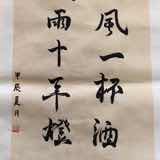 風一杯酒
雨十年燈
甲辰夏月